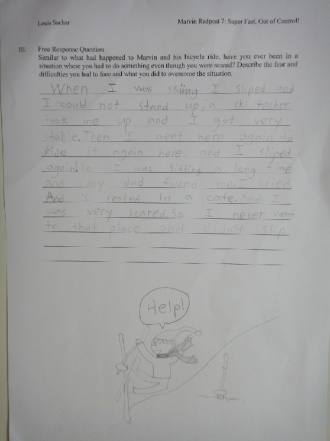 Louis Sachar
Marvin Redpost 7: Super Fast, Out of Control!
III. Free Response Question
Similar to what had happened to Marvin and his bicycle ride, have you ever been in a
situation where you had to do something even though you were scared? Describe the fear and
difficulties you had to face and what you did to overcome the situation.
When I was skiing I sliped and
I could not stand up, a ski tacher
took me up and I got very
stable. Then I went here again to
ride it again here and I sliped
again. So I was sitting a long time
and my dad found me. I cried
And I rested in a cafe. And I
was very scared. So I never went
to that place and didn't slip
Help!